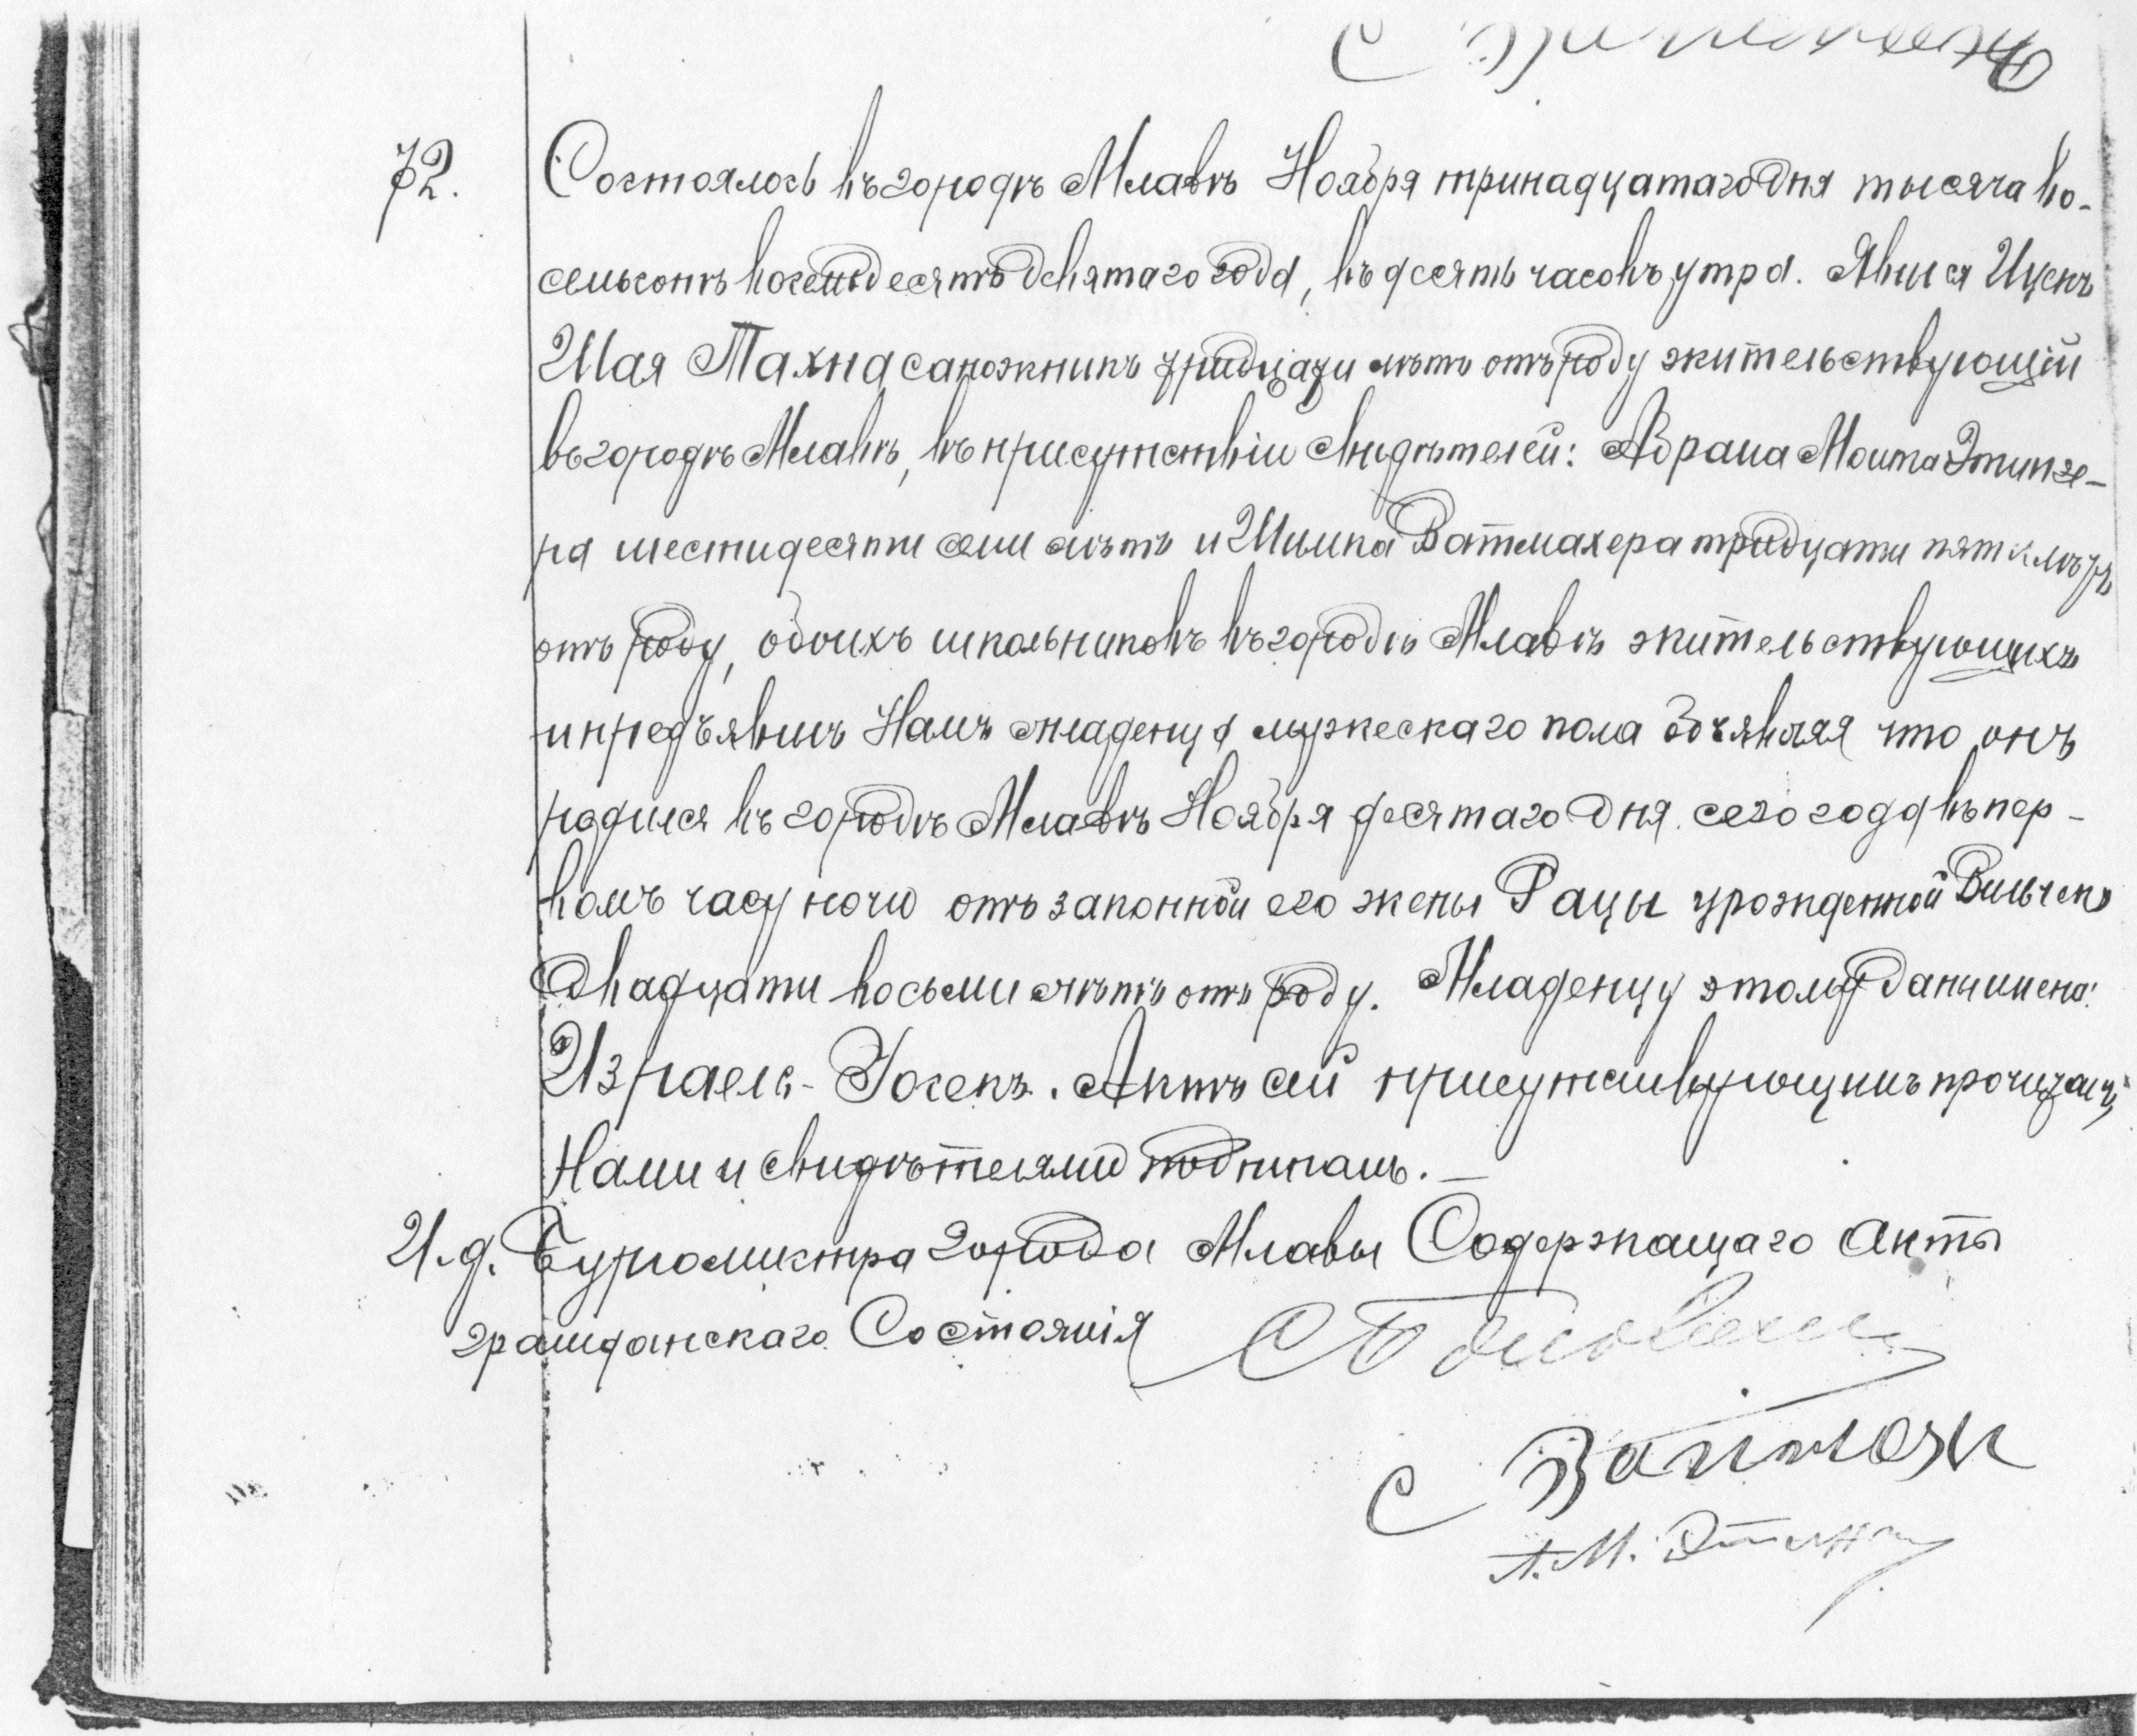 72.
Состоялось въ городѣ Млавѣ Ноября тринадцатаго дня тысяча во-
семьсотъ восемьдесятъ девятаго года, въ десять часовъ утра. Явился Ицекъ
Шая Тахна сапожникъ тридцати лѣтъ отъ роду жительствующій
въ городѣ Млавѣ, въ присутствіи свидѣтелей: Абрама Мошка Этинге-
ра шестидесяти семи лѣтъ и Шимна Ватмахера тридцати пяти лѣтъ
отъ роду, обоихъ школьниковъ въ городѣ Млавѣ жительствующихъ
и предъявилъ Намъ младенца мужескаго пола объявляя что онъ
родился въ городѣ Млавѣ Ноября десятаго дня сего года въ пер-
вомъ часу ночи отъ законной его жены Рацы урожденной Вильчекъ
двадцати восьми лѣтъ отъ роду. Младенцу этому даны имена:
Израель-Іосекъ. Актъ сей присутствующимъ прочитанъ,
Нами и свидѣтелями подписанъ.—
И. д. Бургомистра города Млавы Содержащаго акты
гражданскаго Состоянія
С
А. М.